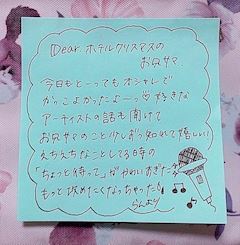 Dear. ホテルクリスマスの
お兄サマ
今日もとーってもオシャレで
がっこよかったよーっ♡好きな
アーティストの話も聞けて
お兄サマのことけしがう知れて嬉しい!
えちえちなことしてる時の
「ちょっと待って」がかわいすぎたっ
もっと攻めたくなっちゃった!
らんより